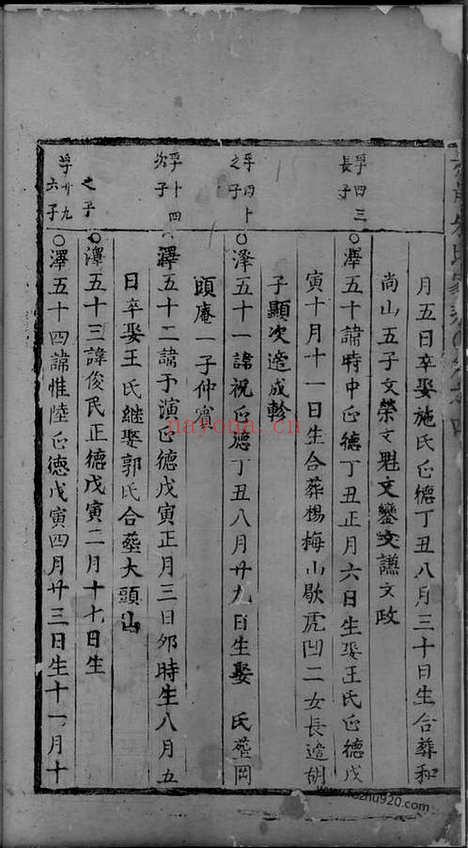 月五日卒娶施氏正德丁丑八月三十日生合葬和
尚山五子文榮文魁文鑾文讌文政
孚四三
長子
○澤五十諱時中正德丁丑正月六日生娶王氏正德戊
寅十月十一日生合葬楊梅山歇虎凹二女長適胡
子顯次適成軫
孚四十
之子
○澤五十一諱祝正德丁丑八月廿九日生娶 氏葬岡
頭庵一子仲賓
孚十四
次子
○澤五十二諱予演正德戊寅正月三日卯時生八月五
日卒娶王氏継娶郭氏合葬大頭山
之子
○澤五十三諱俊民正德戊寅二月十七日生
孚廿九
六子
○澤五十四諱惟陸正德戊寅四月廿三日生十一月十
nayona.cn
www.fozhu920.com